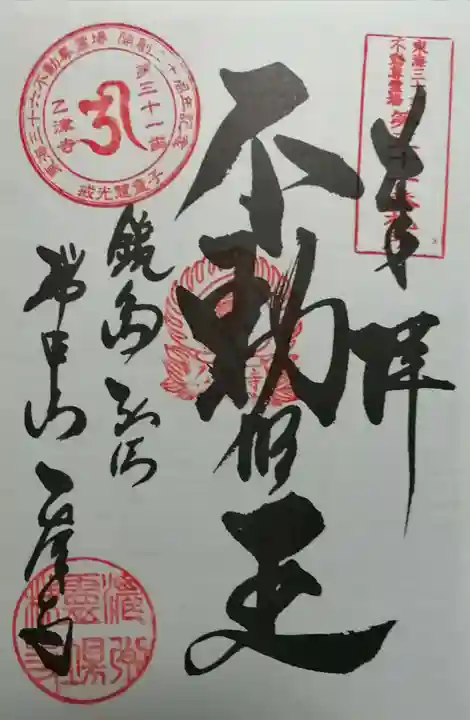 奉拝
東海三十
不動尊霊場
不動明王
鏡島弘法
瑞甲山 乙津寺
東海三十六不動尊霊場 開創二十周年記念
第三十一番
乙津寺
戒光慧童子